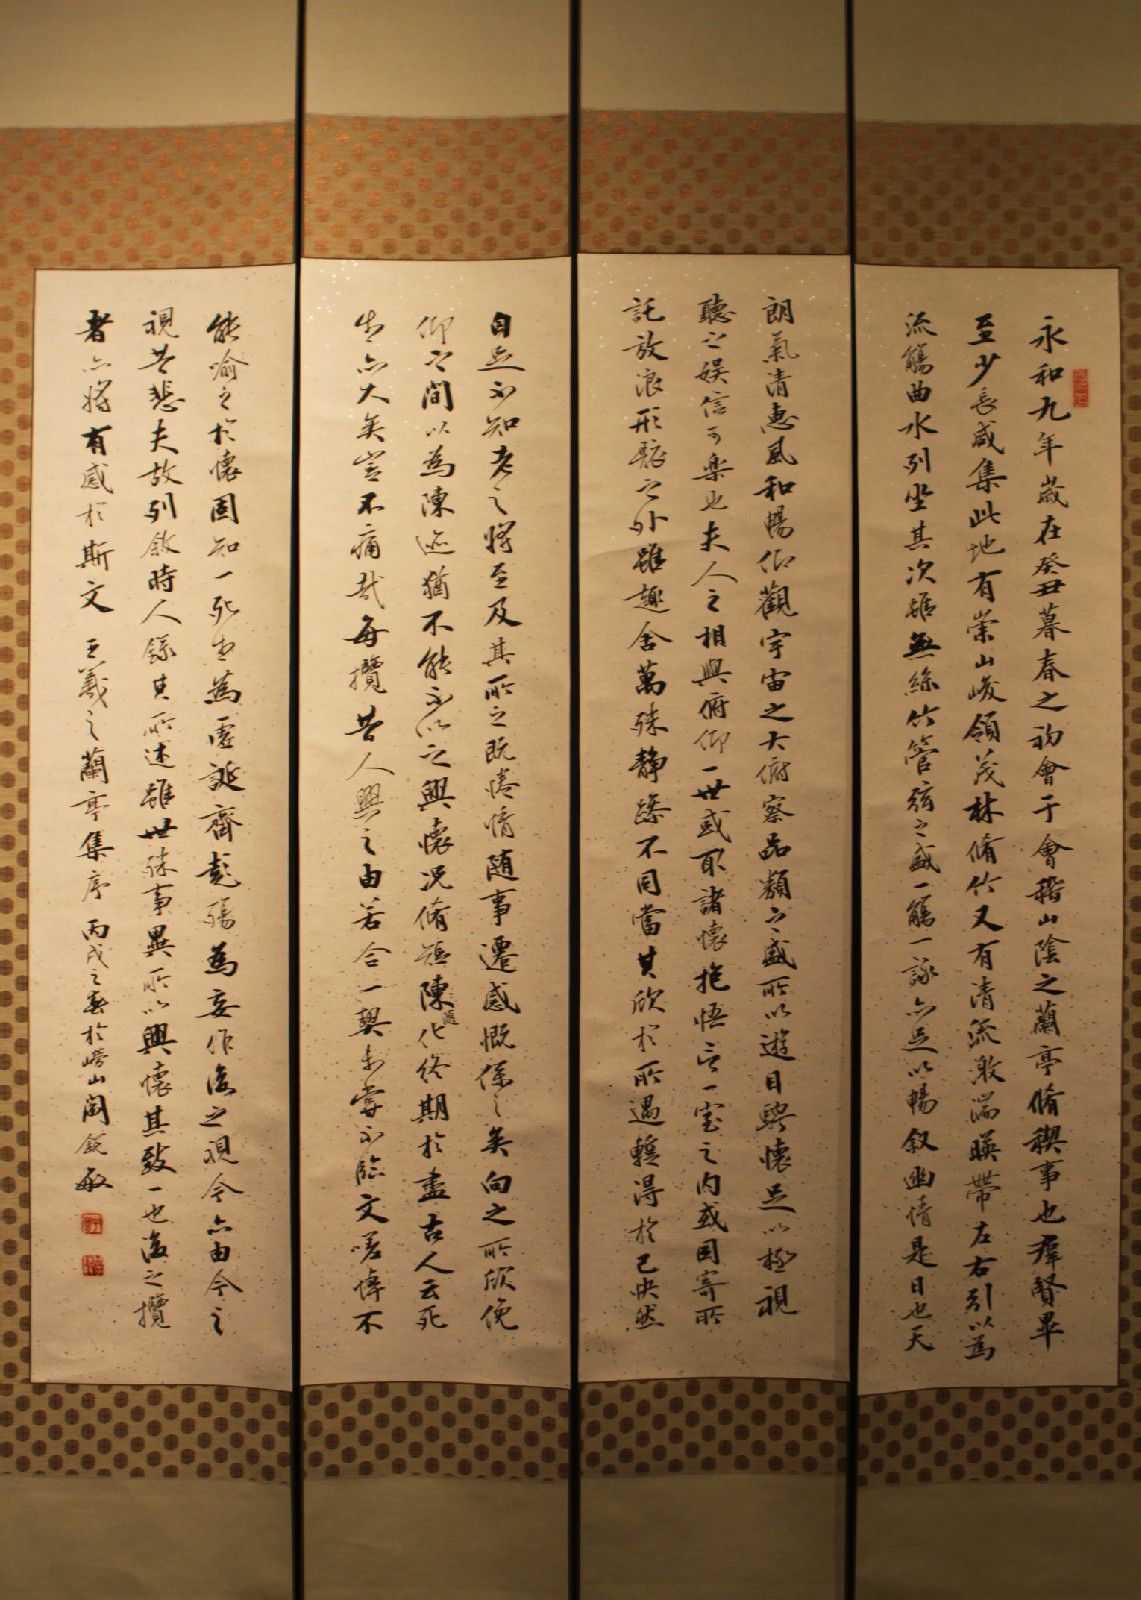 永和九年歲在癸丑暮春之初會于會稽山陰之蘭亭脩稧事也群賢畢
至少長咸集此地有崇山峻領茂林脩竹又有清流激湍暎帶左右引以為
流觴曲水列坐其次雖無絲竹管弦之盛一觴一詠亦足以暢叙幽情是日也天
朗氣清惠風和暢仰觀宇宙之大俯察品類之盛所以遊目騁懷足以極視
聽之娛信可樂也夫人之相與俯仰一世或取諸懷抱悟言一室之內或因寄所
託放浪形骸之外雖趣舍萬殊靜躁不同當其欣於所遇暫得於己怏然
自足不知老之將至及其所之既惓情隨事遷感慨係之矣向之所欣俛
仰之間以為陳迹猶不能不以之興懷況脩短陳化終期於盡古人云死
隨
生亦大矣豈不痛哉每攬昔人興之由若合一契未嘗不臨文嗟悼不
能喻之於懷固知一死生為虛誕齊彭殤為妄作後之視今亦由今之
視昔悲夫故列敘時人錄其所述雖世殊事異所以興懷其致一也後之攬
者亦將有感於斯文 王羲之蘭亭集序 丙戌之春於嶗山閻銳敏